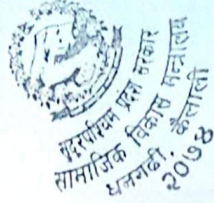 सुदूरपश्चिम प्रदेश सरकार
सामाजिक विकास मन्त्रालय
धनगढी, कैलाली
२०७४